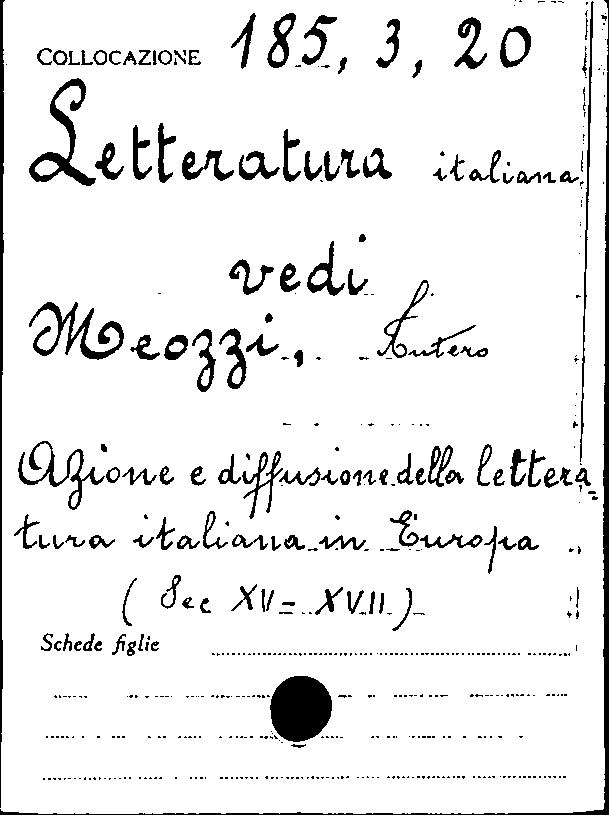 COLLOCAZIONE 185, 3, 20
Letteratura italiana
vedi
Meozzi, Antero
Azione e diffusione della lettera=
tura italiana in Europa
(Sec XV = XVII)
Schede figlie